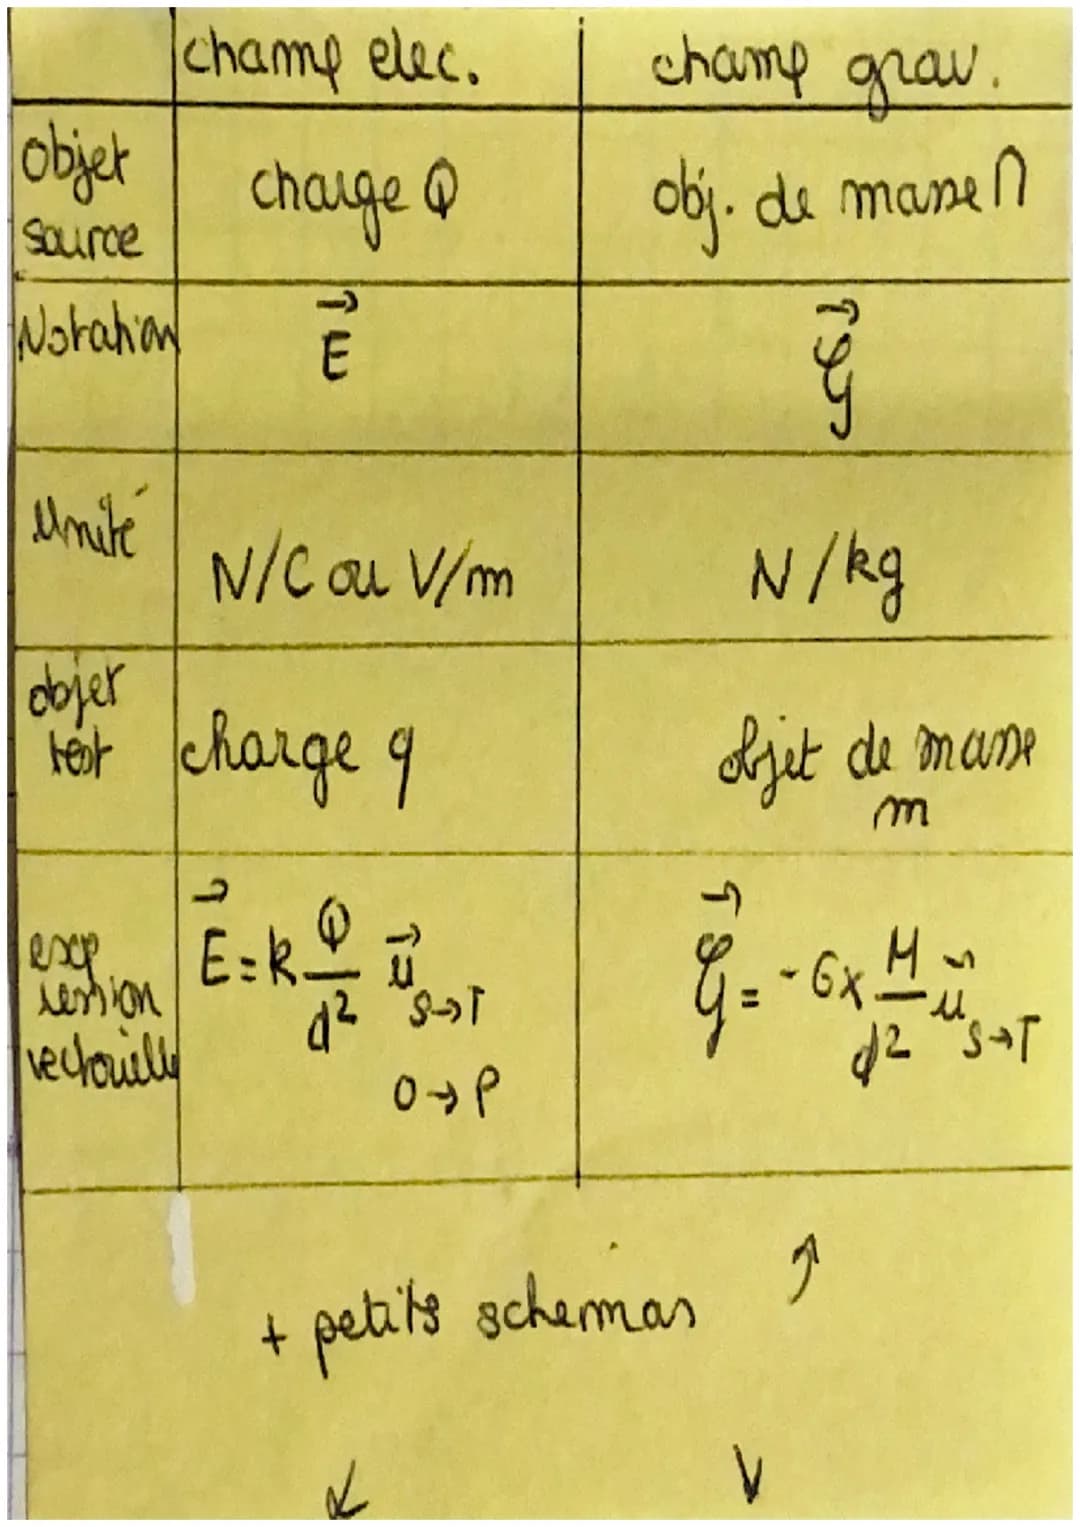 champ elec. champ grav.
objet source charge Q obj. de masse M
Notation E⃗ 𝒢⃗
Unité N/C ou V/m N/kg
objet test charge q objet de masse m
exp
ression
vectorielle
E⃗ = k Q/d² u⃗ S→T
O→P
𝒢⃗ = -G x M/d² u⃗ S→T
+ petits schemas